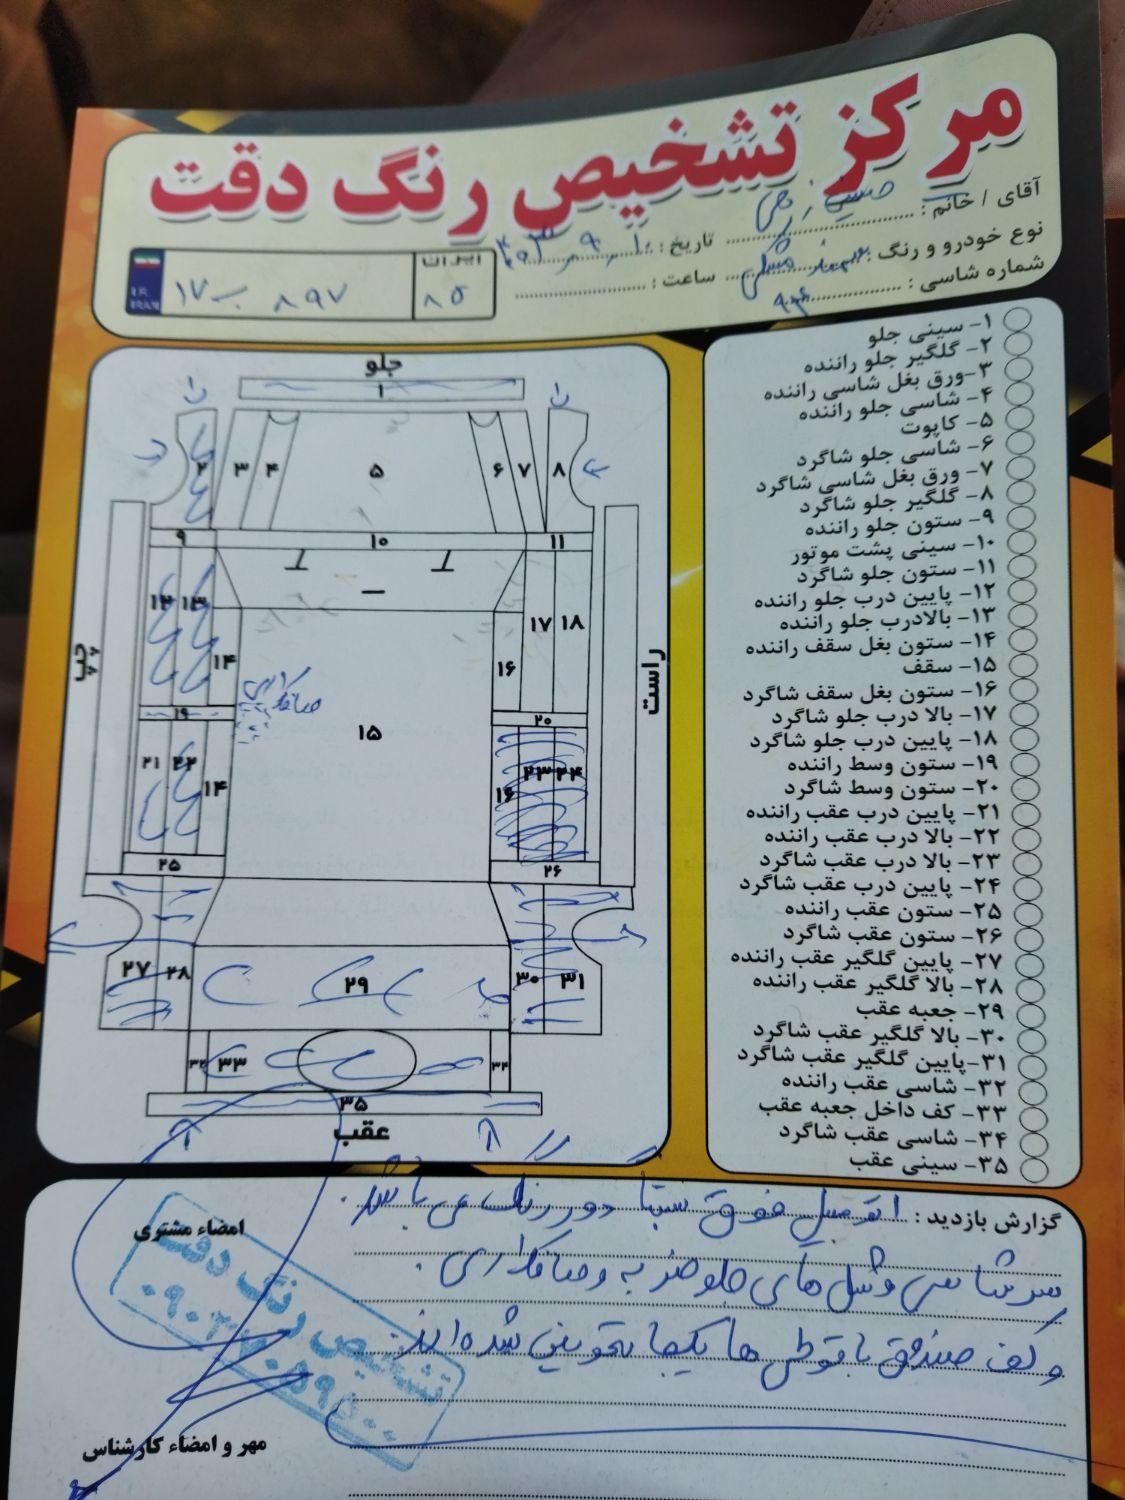 مرکز تشخیص رنگ دقت
آقای / خانم :
نوع خودرو و رنگ : سمند مشکی
شماره شاسی :
تاریخ :
ساعت :
ایران
۸۵
۸۹۷ ب ۱۷
I.R.
IRAN
جلو
چپ
راست
عقب
۱
۲ ۳ ۴ ۵ ۶ ۷ ۸
۹ ۱۰ ۱۱
۱۲ ۱۳ ۱۴ ۱۵ ۱۶ ۱۷ ۱۸
صافکاری
۱۹ ۲۰
۲۱ ۲۲ ۱۴ ۱۶ ۲۳ ۲۴
۲۵ ۲۶
۲۷ ۲۸ ۲۹ ۳۰ ۳۱
۳۲ ۳۳ ۳۴
۳۵
۱- سینی جلو
۲- گلگیر جلو راننده
۳- ورق بغل شاسی راننده
۴- شاسی جلو راننده
۵- کاپوت
۶- شاسی جلو شاگرد
۷- ورق بغل شاسی شاگرد
۸- گلگیر جلو شاگرد
۹- ستون جلو راننده
۱۰- سینی پشت موتور
۱۱- ستون جلو شاگرد
۱۲- پایین درب جلو راننده
۱۳- بالادرب جلو راننده
۱۴- ستون بغل سقف راننده
۱۵- سقف
۱۶- ستون بغل سقف شاگرد
۱۷- بالا درب جلو شاگرد
۱۸- پایین درب جلو شاگرد
۱۹- ستون وسط راننده
۲۰- ستون وسط شاگرد
۲۱- پایین درب عقب راننده
۲۲- بالا درب عقب راننده
۲۳- بالا درب عقب شاگرد
۲۴- پایین درب عقب شاگرد
۲۵- ستون عقب راننده
۲۶- ستون عقب شاگرد
۲۷- پایین گلگیر عقب راننده
۲۸- بالا گلگیر عقب راننده
۲۹- جعبه عقب
۳۰- بالا گلگیر عقب شاگرد
۳۱- پایین گلگیر عقب شاگرد
۳۲- شاسی عقب راننده
۳۳- کف داخل جعبه عقب
۳۴- شاسی عقب شاگرد
۳۵- سینی عقب
گزارش بازدید : اتومبیل فوق نسبتا دور رنگ می باشد.
سرشاسی و شل های جلو ضربه و صافکاری.
و کف صندوق با قوطی ها یکجا تعویض شده اند.
امضاء مشتری
تشخیص رنگ دقت
مهر و امضاء کارشناس